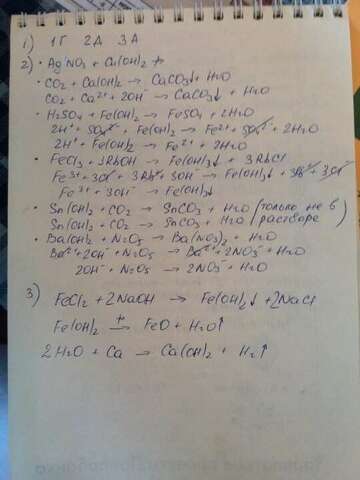 1) 1Г 2Д 3А
2) • AgNO₃ + Cu(OH)₂ ↛
• CO₂ + Ca(OH)₂ → CaCO₃↓ + H₂O
CO₂ + Ca²⁺ + 2OH⁻ → CaCO₃↓ + H₂O
• H₂SO₄ + Fe(OH)₂ → FeSO₄ + 2H₂O
2H⁺ + SO₄²⁻ + Fe(OH)₂ → Fe²⁺ + SO₄²⁻ + 2H₂O
2H⁺ + Fe(OH)₂ → Fe²⁺ + 2H₂O
• FeCl₃ + 3RbOH → Fe(OH)₃↓ + 3RbCl
Fe³⁺ + 3Cl⁻ + 3Rb⁺ + 3OH⁻ → Fe(OH)₃↓ + 3Rb⁺ + 3Cl⁻
Fe³⁺ + 3OH⁻ → Fe(OH)₃↓
• Sn(OH)₂ + CO₂ → SnCO₃ + H₂O (только не в
Sn(OH)₂ + CO₂ → SnCO₃ + H₂O растворе)
• Ba(OH)₂ + N₂O₅ → Ba(NO₃)₂ + H₂O
Ba²⁺ + 2OH⁻ + N₂O₅ → Ba²⁺ + 2NO₃⁻ + H₂O
2OH⁻ + N₂O₅ → 2NO₃⁻ + H₂O
3) FeCl₂ + 2NaOH → Fe(OH)₂↓ + 2NaCl
Fe(OH)₂ →ᵗ FeO + H₂O↑
2H₂O + Ca → Ca(OH)₂ + H₂↑